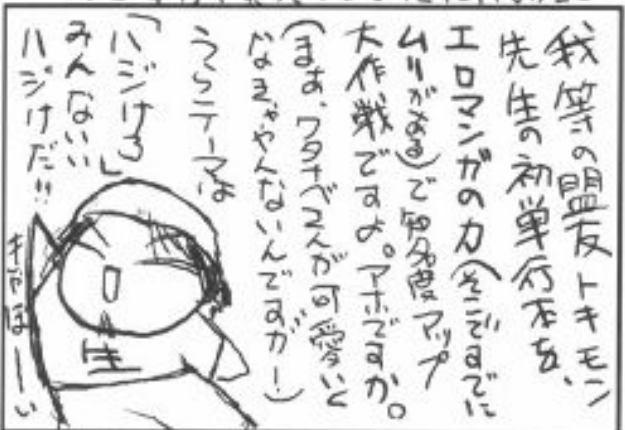 我等の盟友トキモン
先生の初単行本を、
エロマンガの力(そこですでに
ムリがある)で知名度アップ
大作戦ですよ。アホですか。
(まあ、ワタナベさんが可愛いく
なきゃやんないんですがー)
うらテーマは
「ハジけろ」
みんないい
ハジけだ!!
きゃほーーい
生